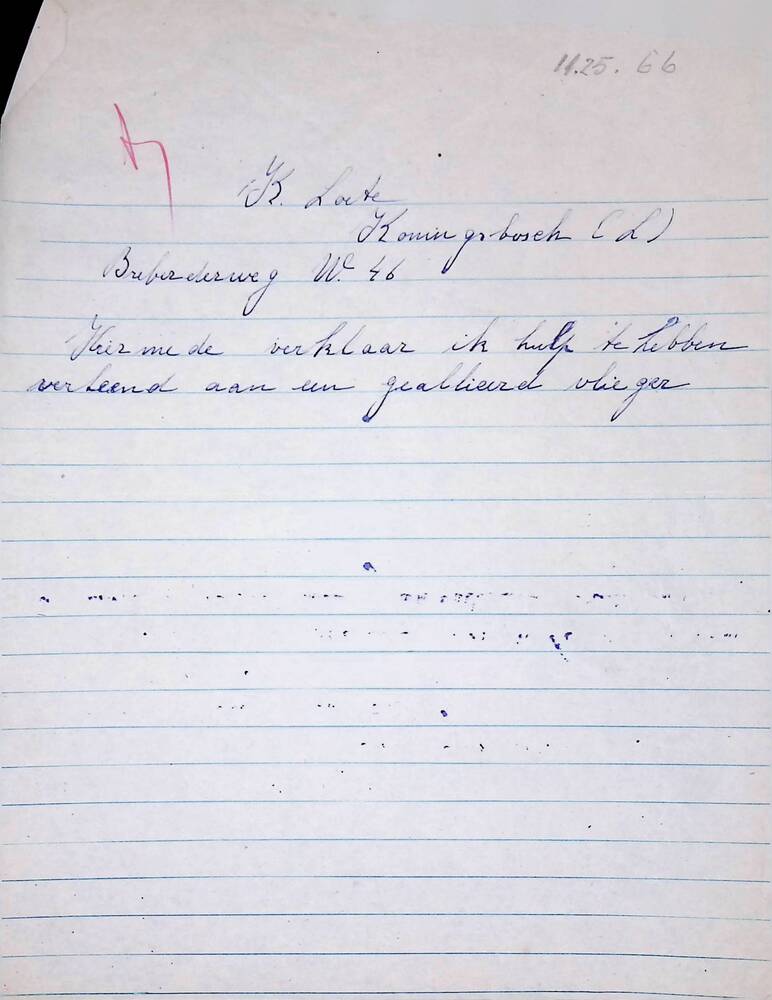 11.25.66
K. Loete
Koningsbosch (L)
Breberderweg W. 46
Hiermede verklaar ik hulp te hebben
verleend aan een geallieerd vlieger